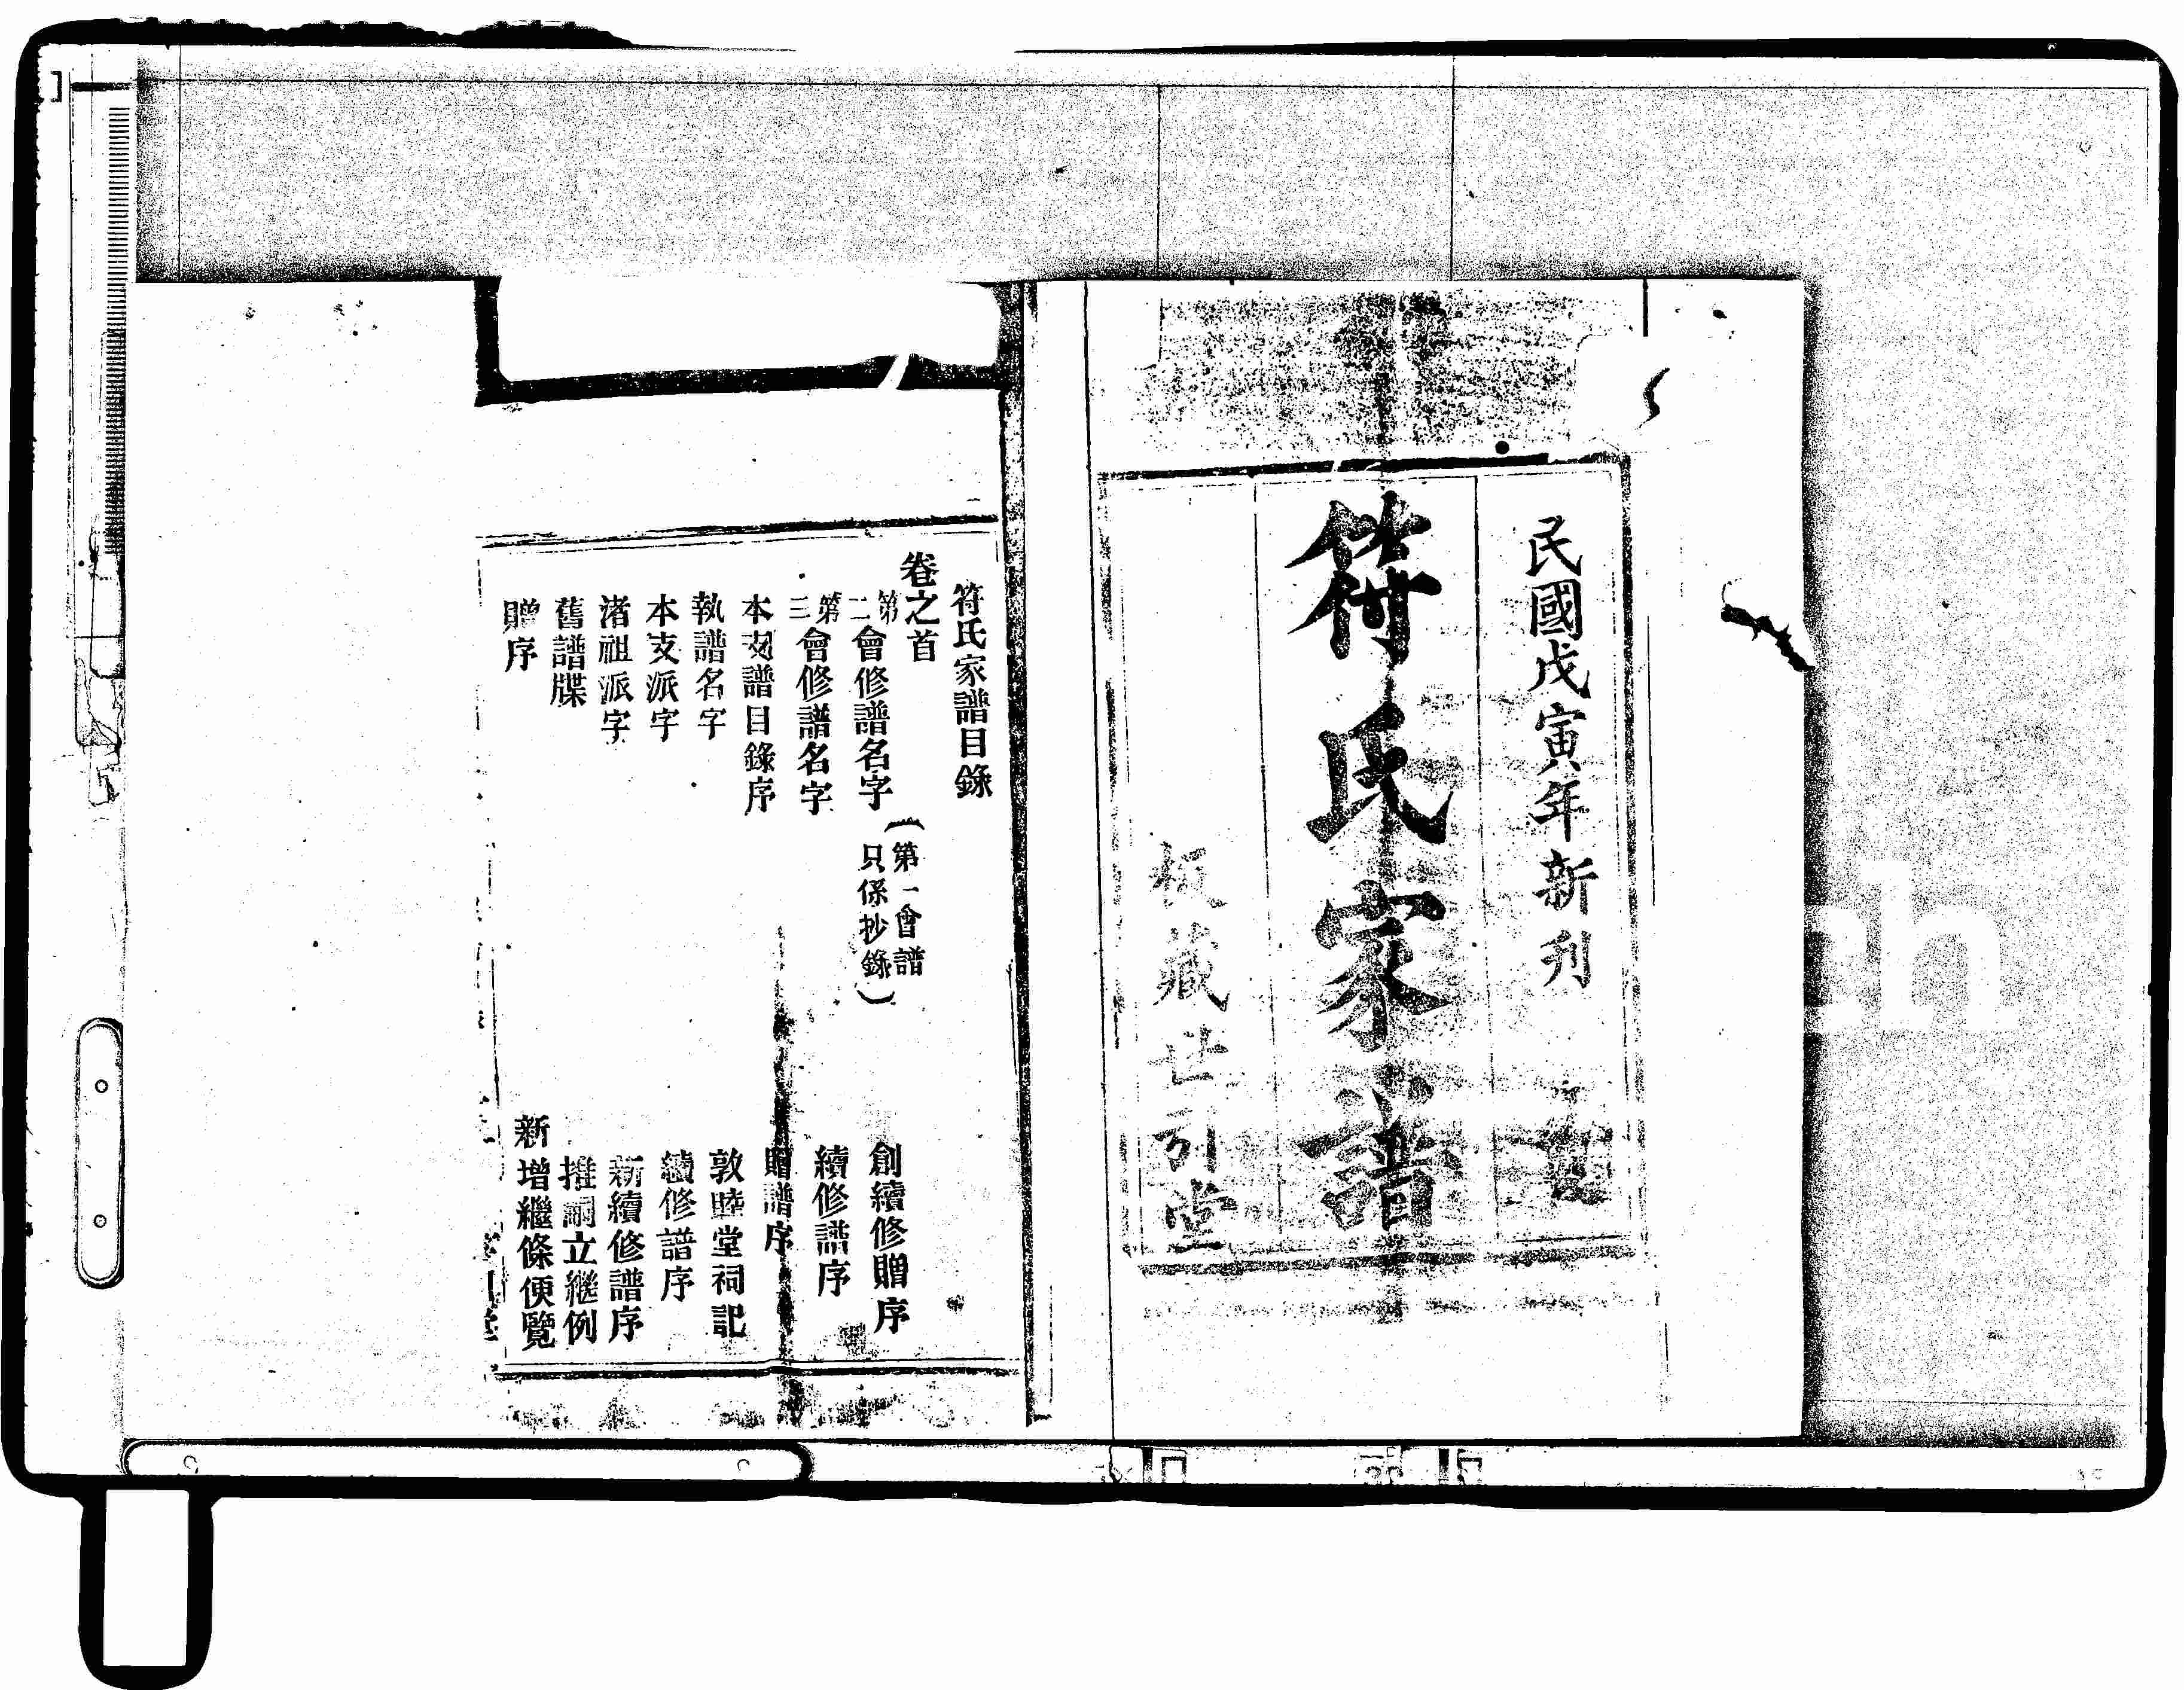 民國戊寅年新刊
符氏家譜
板藏世引堂
符氏家譜目錄
卷之首
第二會修譜名字
(第一會譜只係抄錄)
創續修贈序
第三會修譜名字
續修譜序
本支譜目錄序
贈譜序
執譜名字
敦睦堂祠記
本支派字
續修譜序
渚祖派字
新續修譜序
舊譜牒
推嗣立繼例
贈序
新增繼條便覽